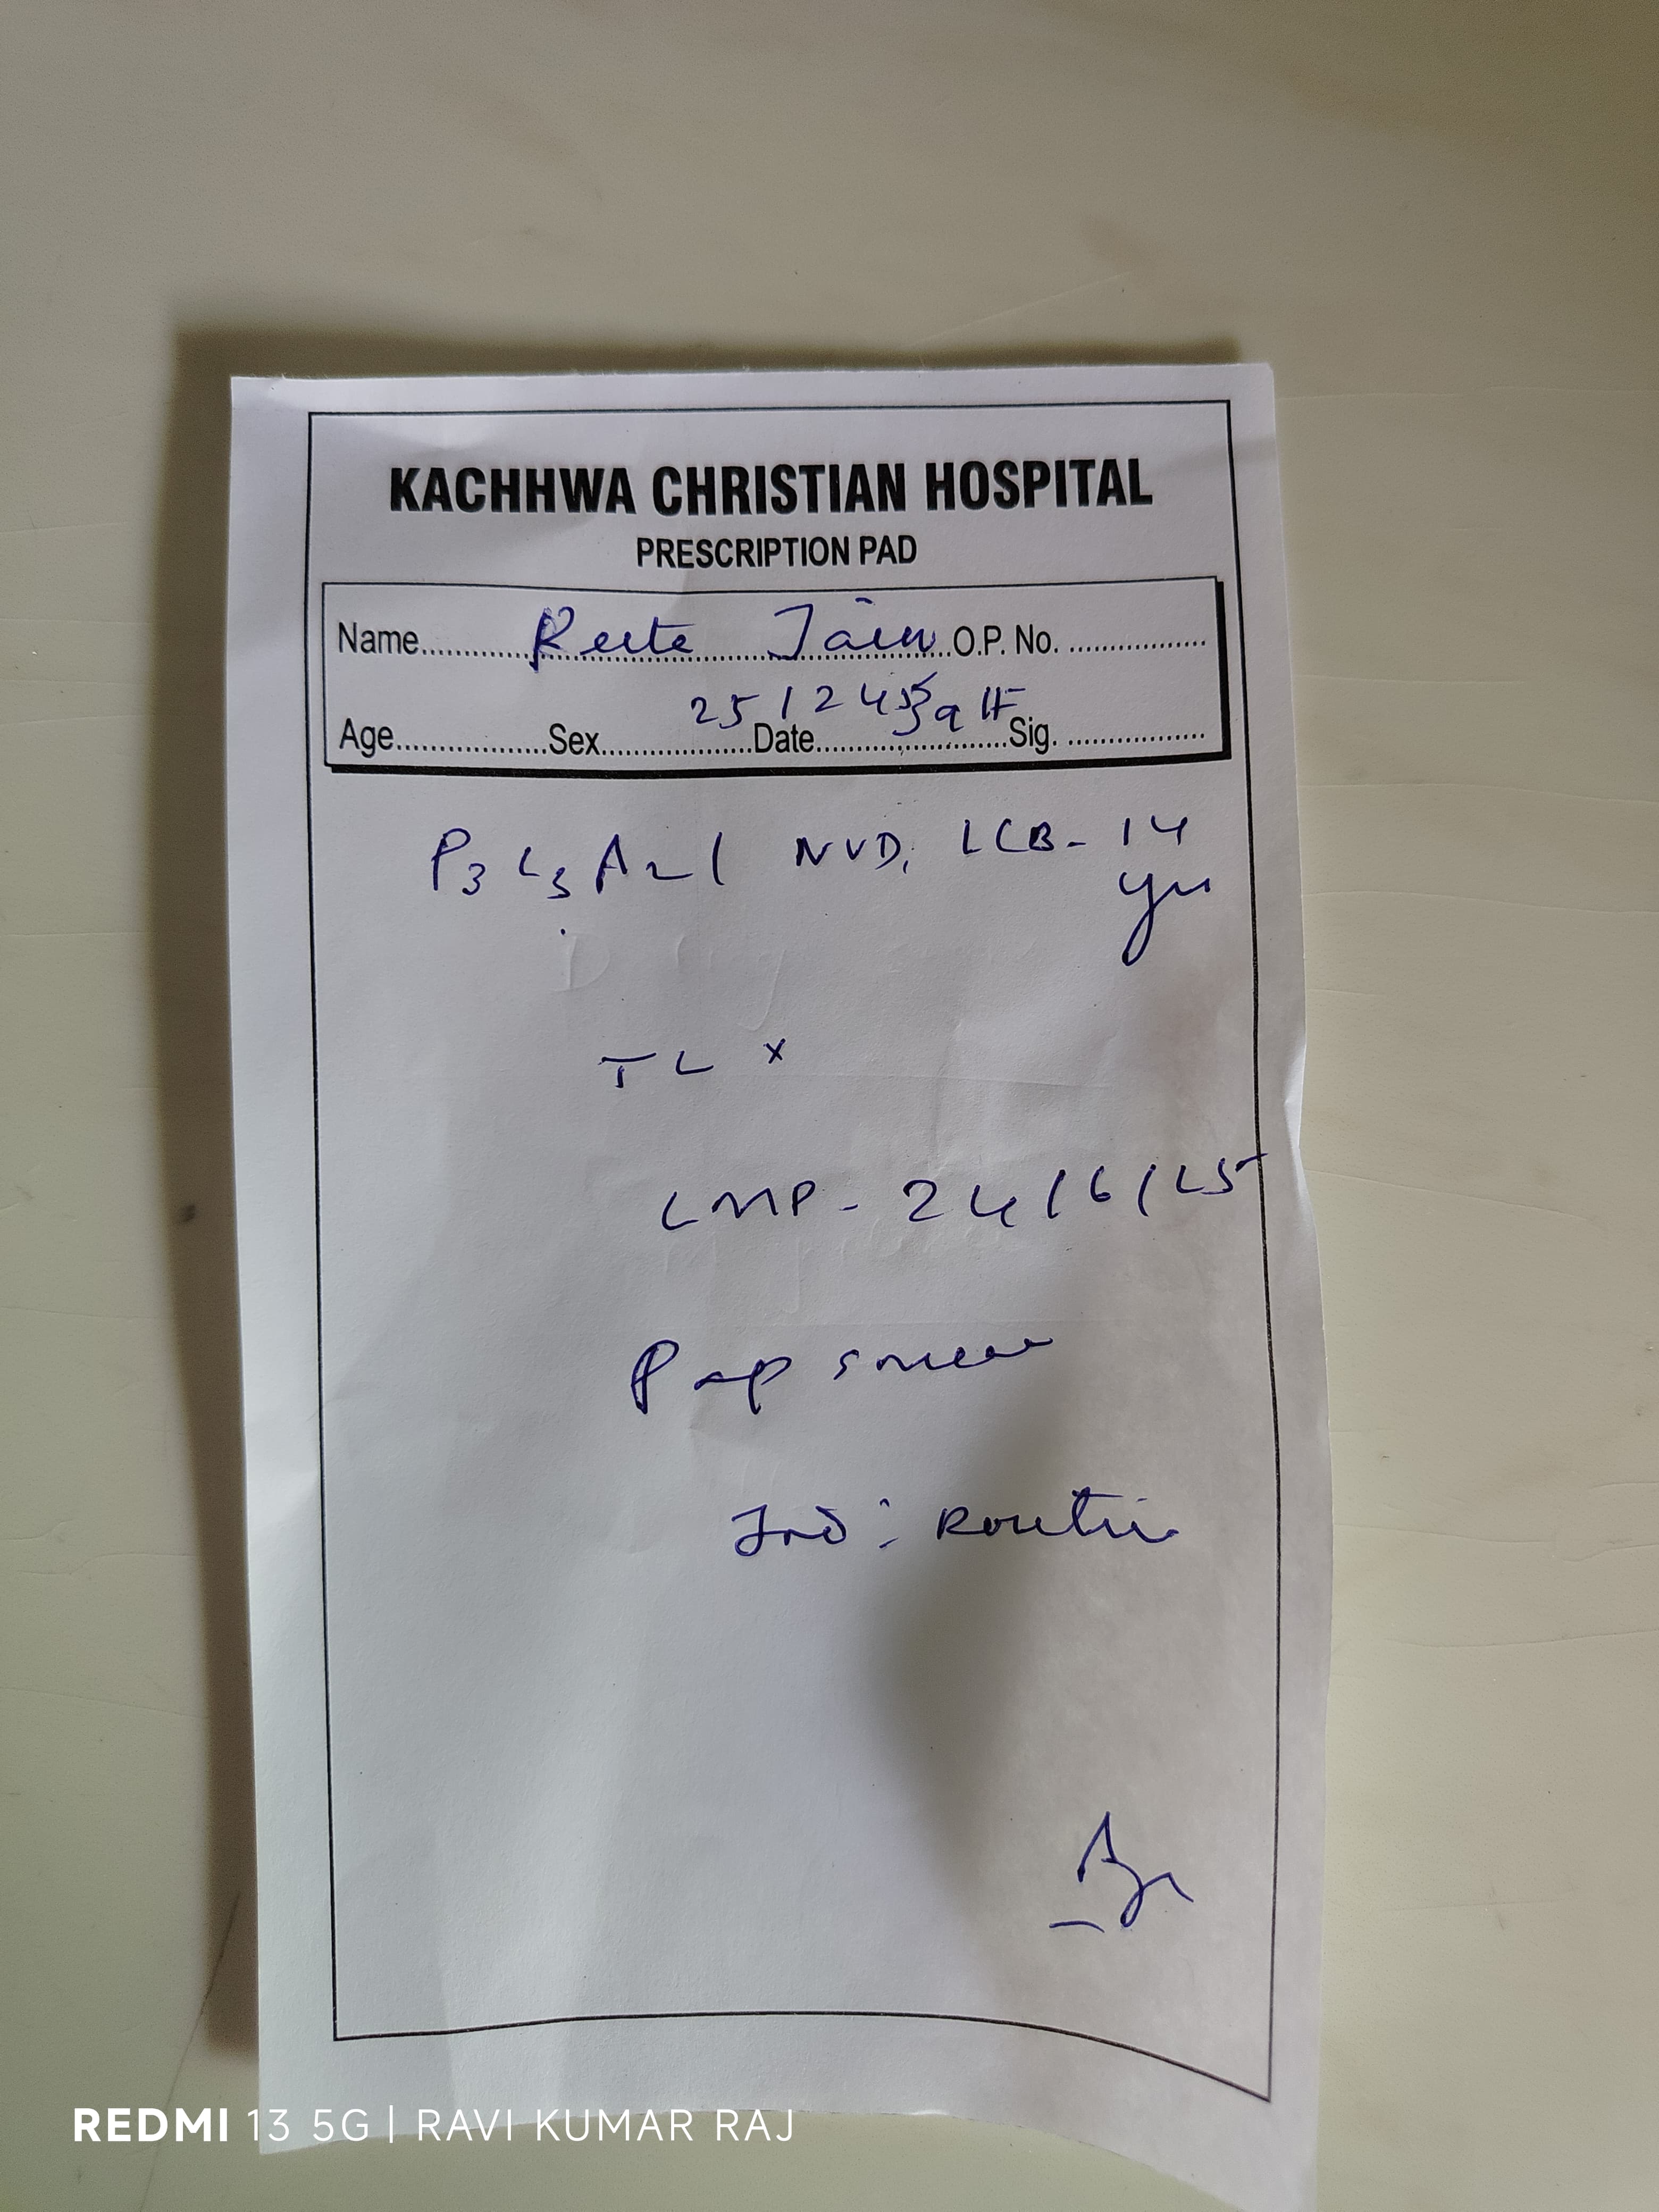 KACHHWA CHRISTIAN HOSPITAL
PRESCRIPTION PAD
Name Reeta Jain O.P. No.
251245
39 / F
Age Sex Date Sig.
P3 L3 A2 NVD, LCB - 14
yrs
TL x
LMP - 24/6/25
Pap smear
Ind: Routine
REDMI 13 5G | RAVI KUMAR RAJ